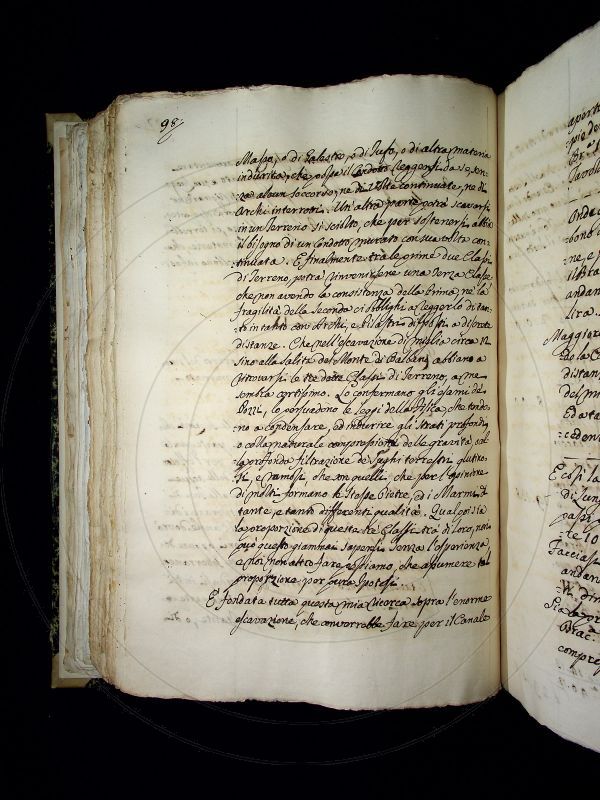 98
Massa, o di Galestro, o di Tufo, o di altra materia
indurita, che possa il Condotto reggersi da se sen-
za alcun soccorso, ne di Volte continuate, ne di
Archi interrotti. Un' altra parte potrà scavarsi
in un Terreno sì sciolto, che per sostenersi abbia
il bisogno di un Condotto murato con sua volta con-
tinuata. E finalmente tra le prime due Classi
di Terreno, potrà rinvenirsene una Terza Classe
che non avendo la consistenza della Prima, nè la
fragilità della Seconda ci obblighi a reggerlo di tan-
to in tanto con Archi, e Pilastri disposti a discrete
distanze. Che nell' escavazione di miglia circa
sino alla salita del Monte di abbiano a
ritrovarsi le tre dette Classi di Terreno, a me
sembra certissimo. Lo confermano gli esami de'
Pozzi, lo persuadono le leggi della Fisica, che tendo-
no a condensare, ed indurire gli Strati profondi,
o colla naturale compressione della gravità, o col-
la profonda filtrazione de' Sughi terrestri glutino-
si, e che son quelli, che per opinione
di molti formano le stesse Pietre, ed i Marmi di
tante, e tanto differenti qualità. Qual poi sia
la proporzione di queste tre Classi trà di loro, non
può questo giammai sapersi senza l'esperienza,
e noi non altro fare possiamo, che assumere tal
proporzione per pura Ipotesi.
E fondata tutta questa mia ricerca sopra l'enorme
escavazione, che converrebbe fare per il Canale
aperto
Onde
bono
andan
lira.
Maggior
distan
del mu
Ed ata
cedent
E così la
di lun
passi
te 10
Facciasi
andan
Sia la pr
Brac.
compre